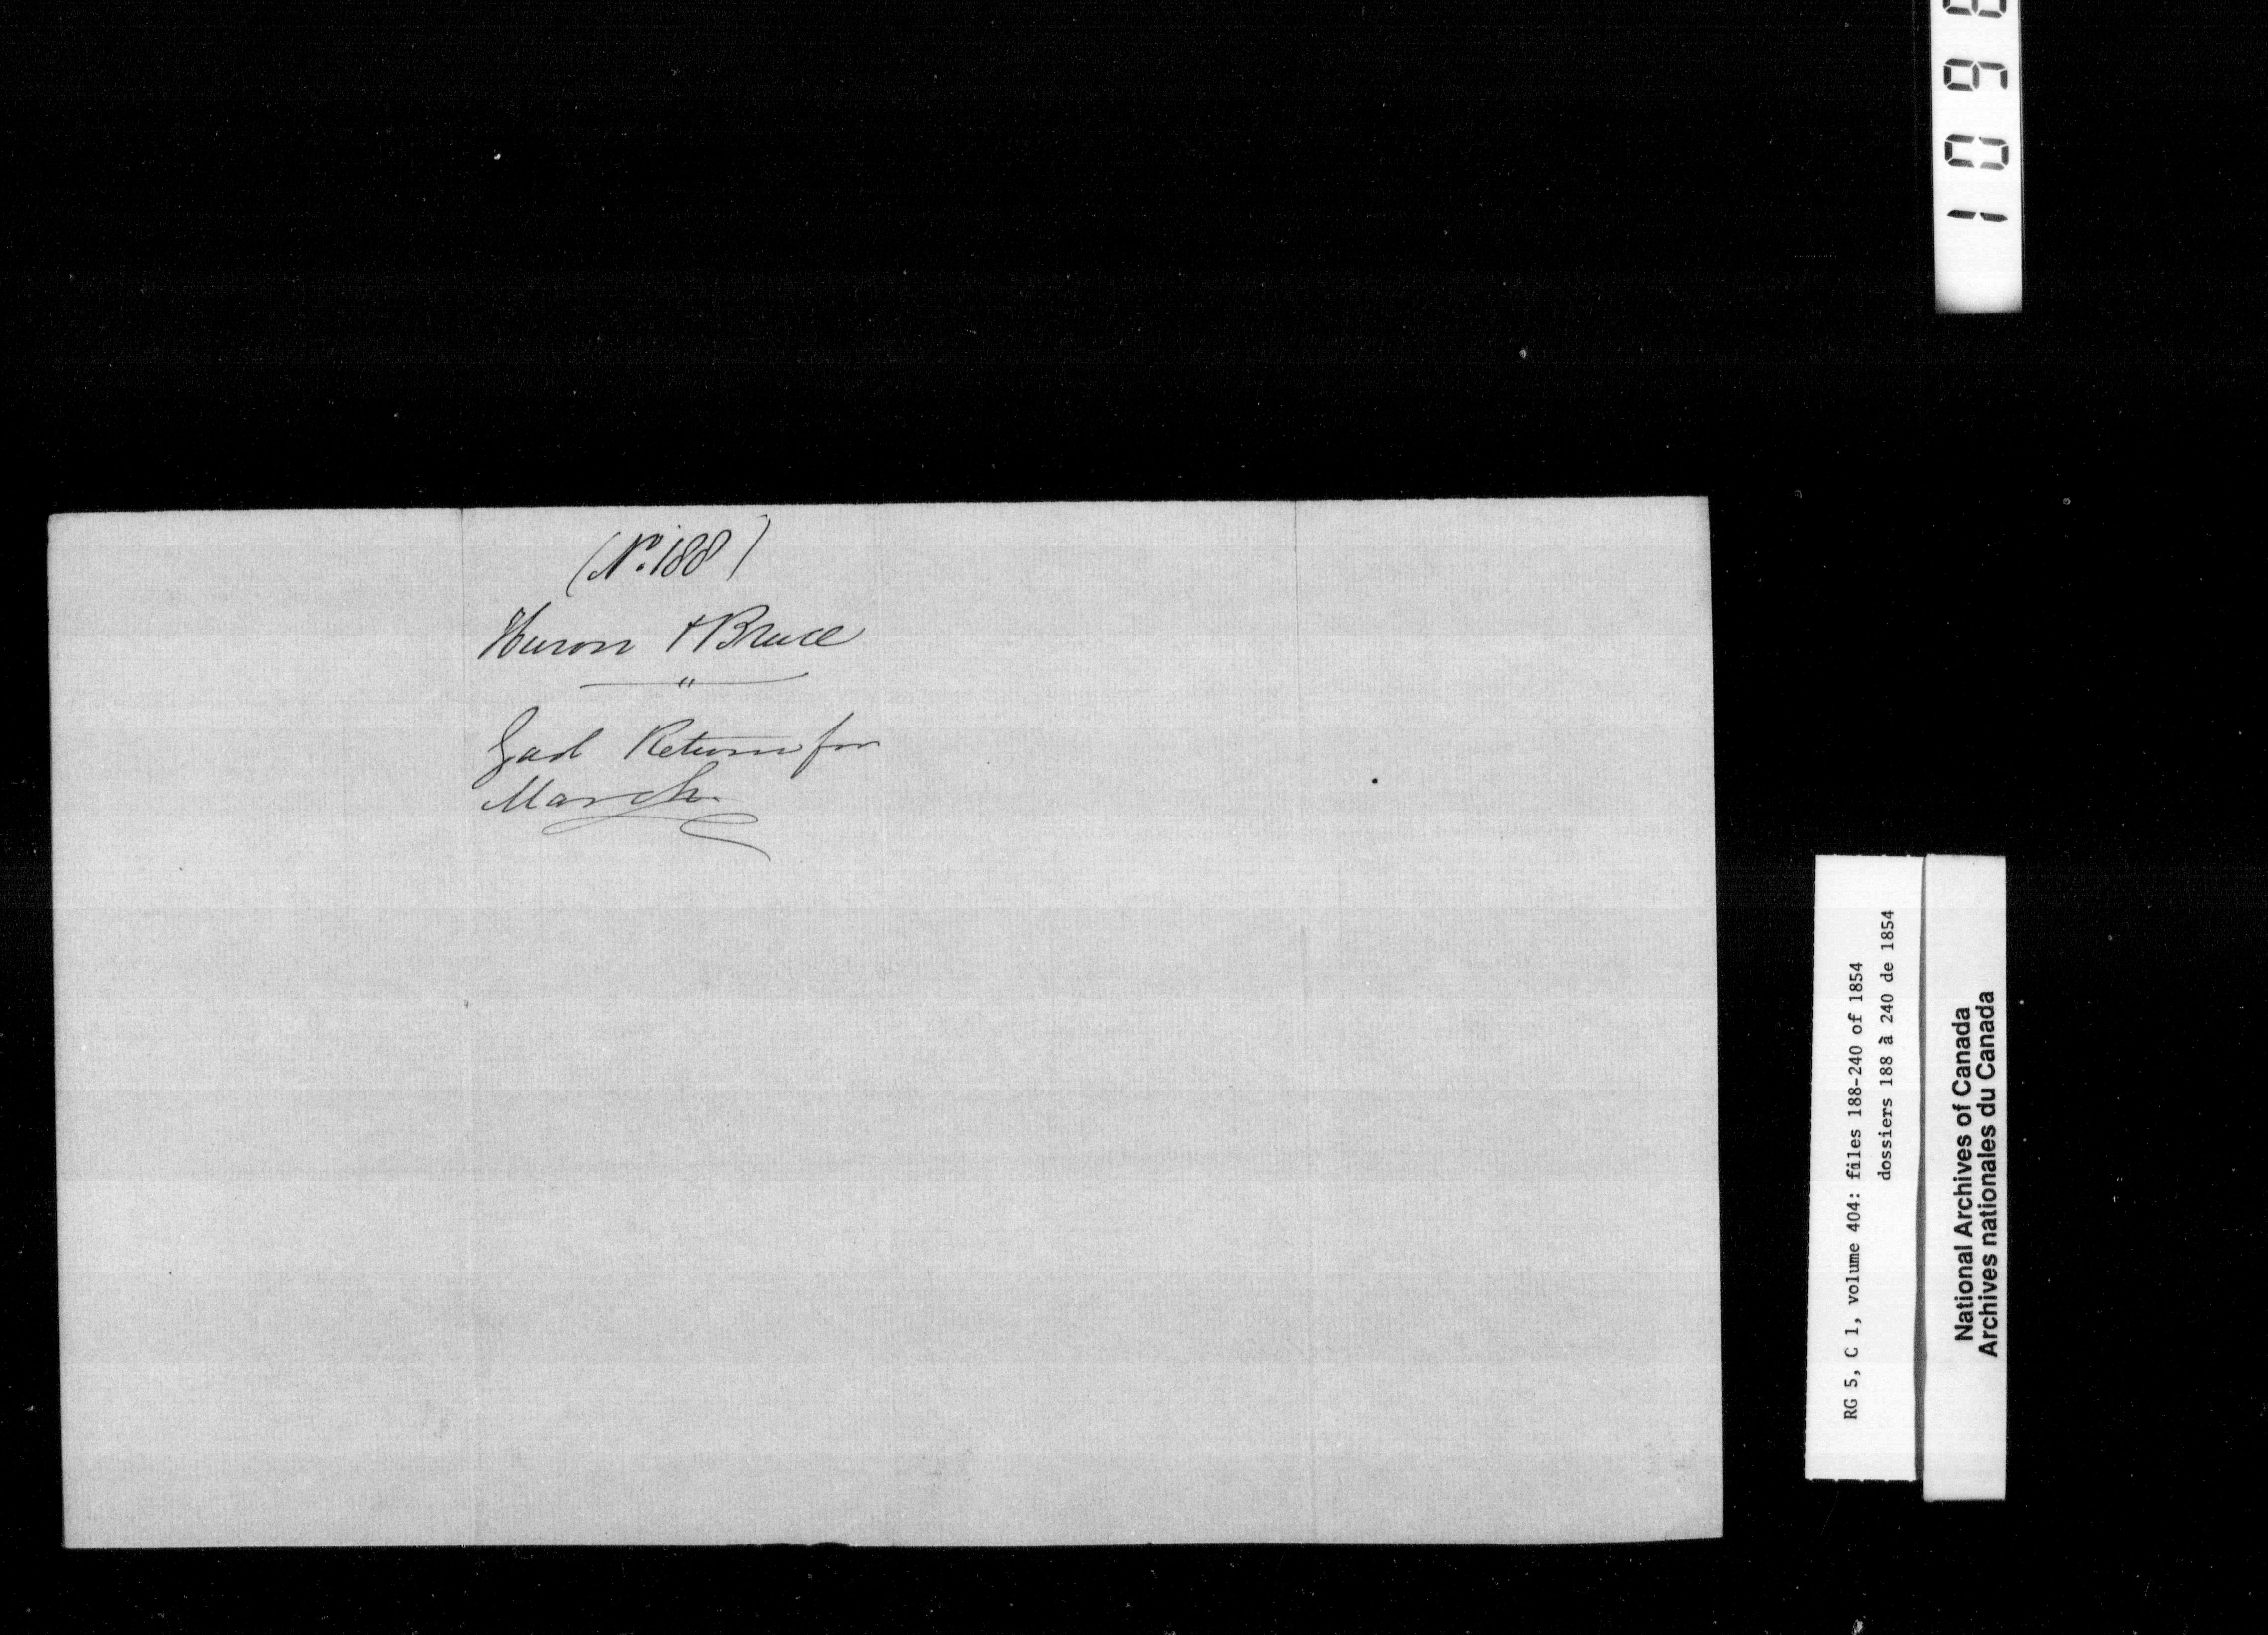 (No. 188)
Huron & Bruce
"
Gaol Return for
March
RG 5, C 1, volume 404: files 188-240 of 1854
dossiers 188 à 240 de 1854
National Archives of Canada
Archives nationales du Canada
1 0 9